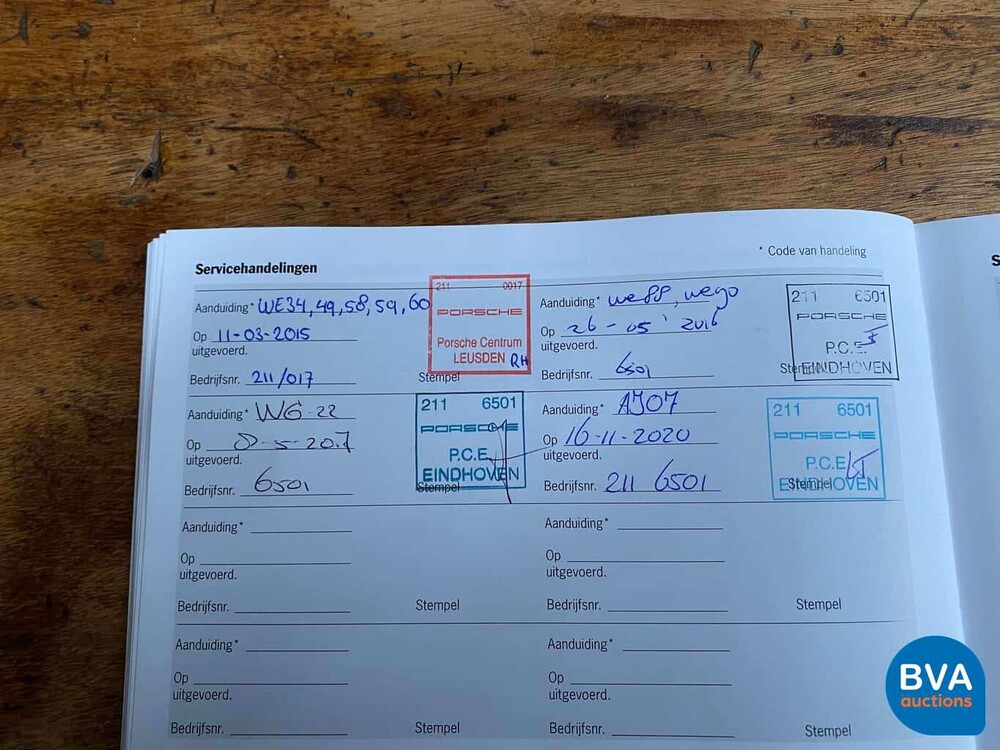 * Code van handeling
Servicehandelingen
Aanduiding* WE34, 49, 58, 59, 60
Op 11-03-2015
uitgevoerd.
Bedrijfsnr. 211/017
Stempel
211 0017
PORSCHE
Porsche Centrum
LEUSDEN RH
Aanduiding* we88, we90
Op 26-05 2016
uitgevoerd.
Bedrijfsnr. 6501
211 6501
PORSCHE
P.C.E.
EINDHOVEN
Aanduiding* WG-22
Op -5-2017
uitgevoerd.
Bedrijfsnr. 6501
Stempel
211 6501
PORSCHE
P.C.E.
EINDHOVEN
Aanduiding* AJ07
Op 16-11-2020
uitgevoerd.
Bedrijfsnr. 211 6501
Stempel
211 6501
PORSCHE
P.C.E.
EINDHOVEN
Aanduiding*
Op
uitgevoerd.
Bedrijfsnr.
Stempel
Aanduiding*
Op
uitgevoerd.
Bedrijfsnr.
Stempel
Aanduiding*
Op
uitgevoerd.
Bedrijfsnr.
Stempel
Aanduiding*
Op
uitgevoerd.
Bedrijfsnr.
Stempel
S
BVA
auctions